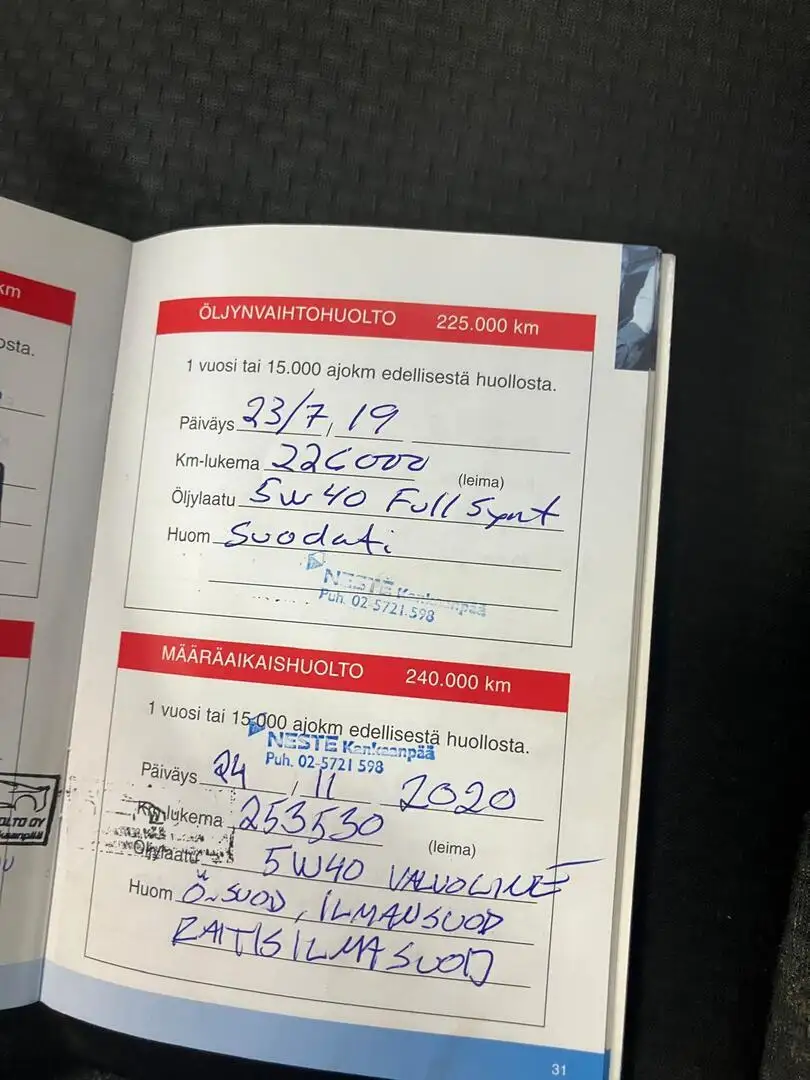 km
osta.
OLTO OY
ÖLJYNVAIHTOHUOLTO 225.000 km
1 vuosi tai 15.000 ajokm edellisestä huollosta.
Päiväys 23/7, 19
Km-lukema 226000
(leima)
Öljylaatu 5w40 Full Synt
Huom Suodati
NESTE Kankaanpää
Puh. 02-5721.598
MÄÄRÄAIKAISHUOLTO 240.000 km
1 vuosi tai 15.000 ajokm edellisestä huollosta.
NESTE Kankaanpää
Puh. 02-5721 598
Päiväys 24 , 11 2020
Km-lukema 253530
(leima)
Öljylaatu 5W40 VALVOLINE
Huom Ö-SUOD, ILMANSUOD
RAITISILMASUOD
31